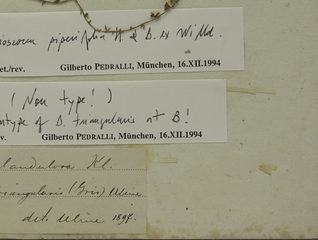 ioscorea piperifolia H. & B. ex Willd.
et./rev. Gilberto PEDRALLI, München, 16.XII.1994
( Non type! )
otype of D. triangularis at B!
v. Gilberto PEDRALLI, München, 16.XII.1994
landulosa Kl.
riangularis (Gris) Uline
det. Uline 1897.